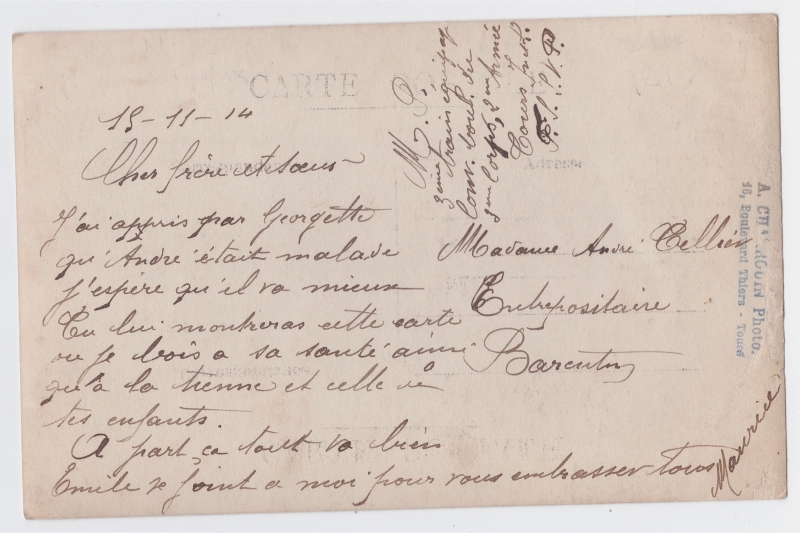 CARTE
15-11-14
Cher frère et soeur
J'ai appris par Georgette
qu'André était malade
j'espère qu'il va mieux
Tu lui montreras cette carte
ou je bois a sa santé ainsi
qu'a la tienne et celle de
tes enfants.
A part ça tout va bien
Emile se joint a moi pour vous embrasser tous
Maurice
3ème train équipag
Conv. boul. du
2em Corps, 2em Armée
Tours
F.S.V.P.
Adresse
Madame André Tellier
Entrepositaire
Barentin
Photo.
16, Boulevard Thiers - Tours